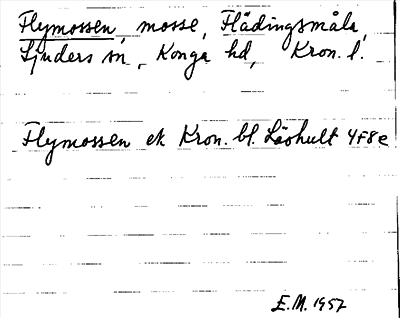 Flymossen, mosse, Flädingsmåla,
Ljuders sn, Konga hd, Kron. l.
Flymossen ek Kron. bl. Låshult 4F8e
E.M. 1957